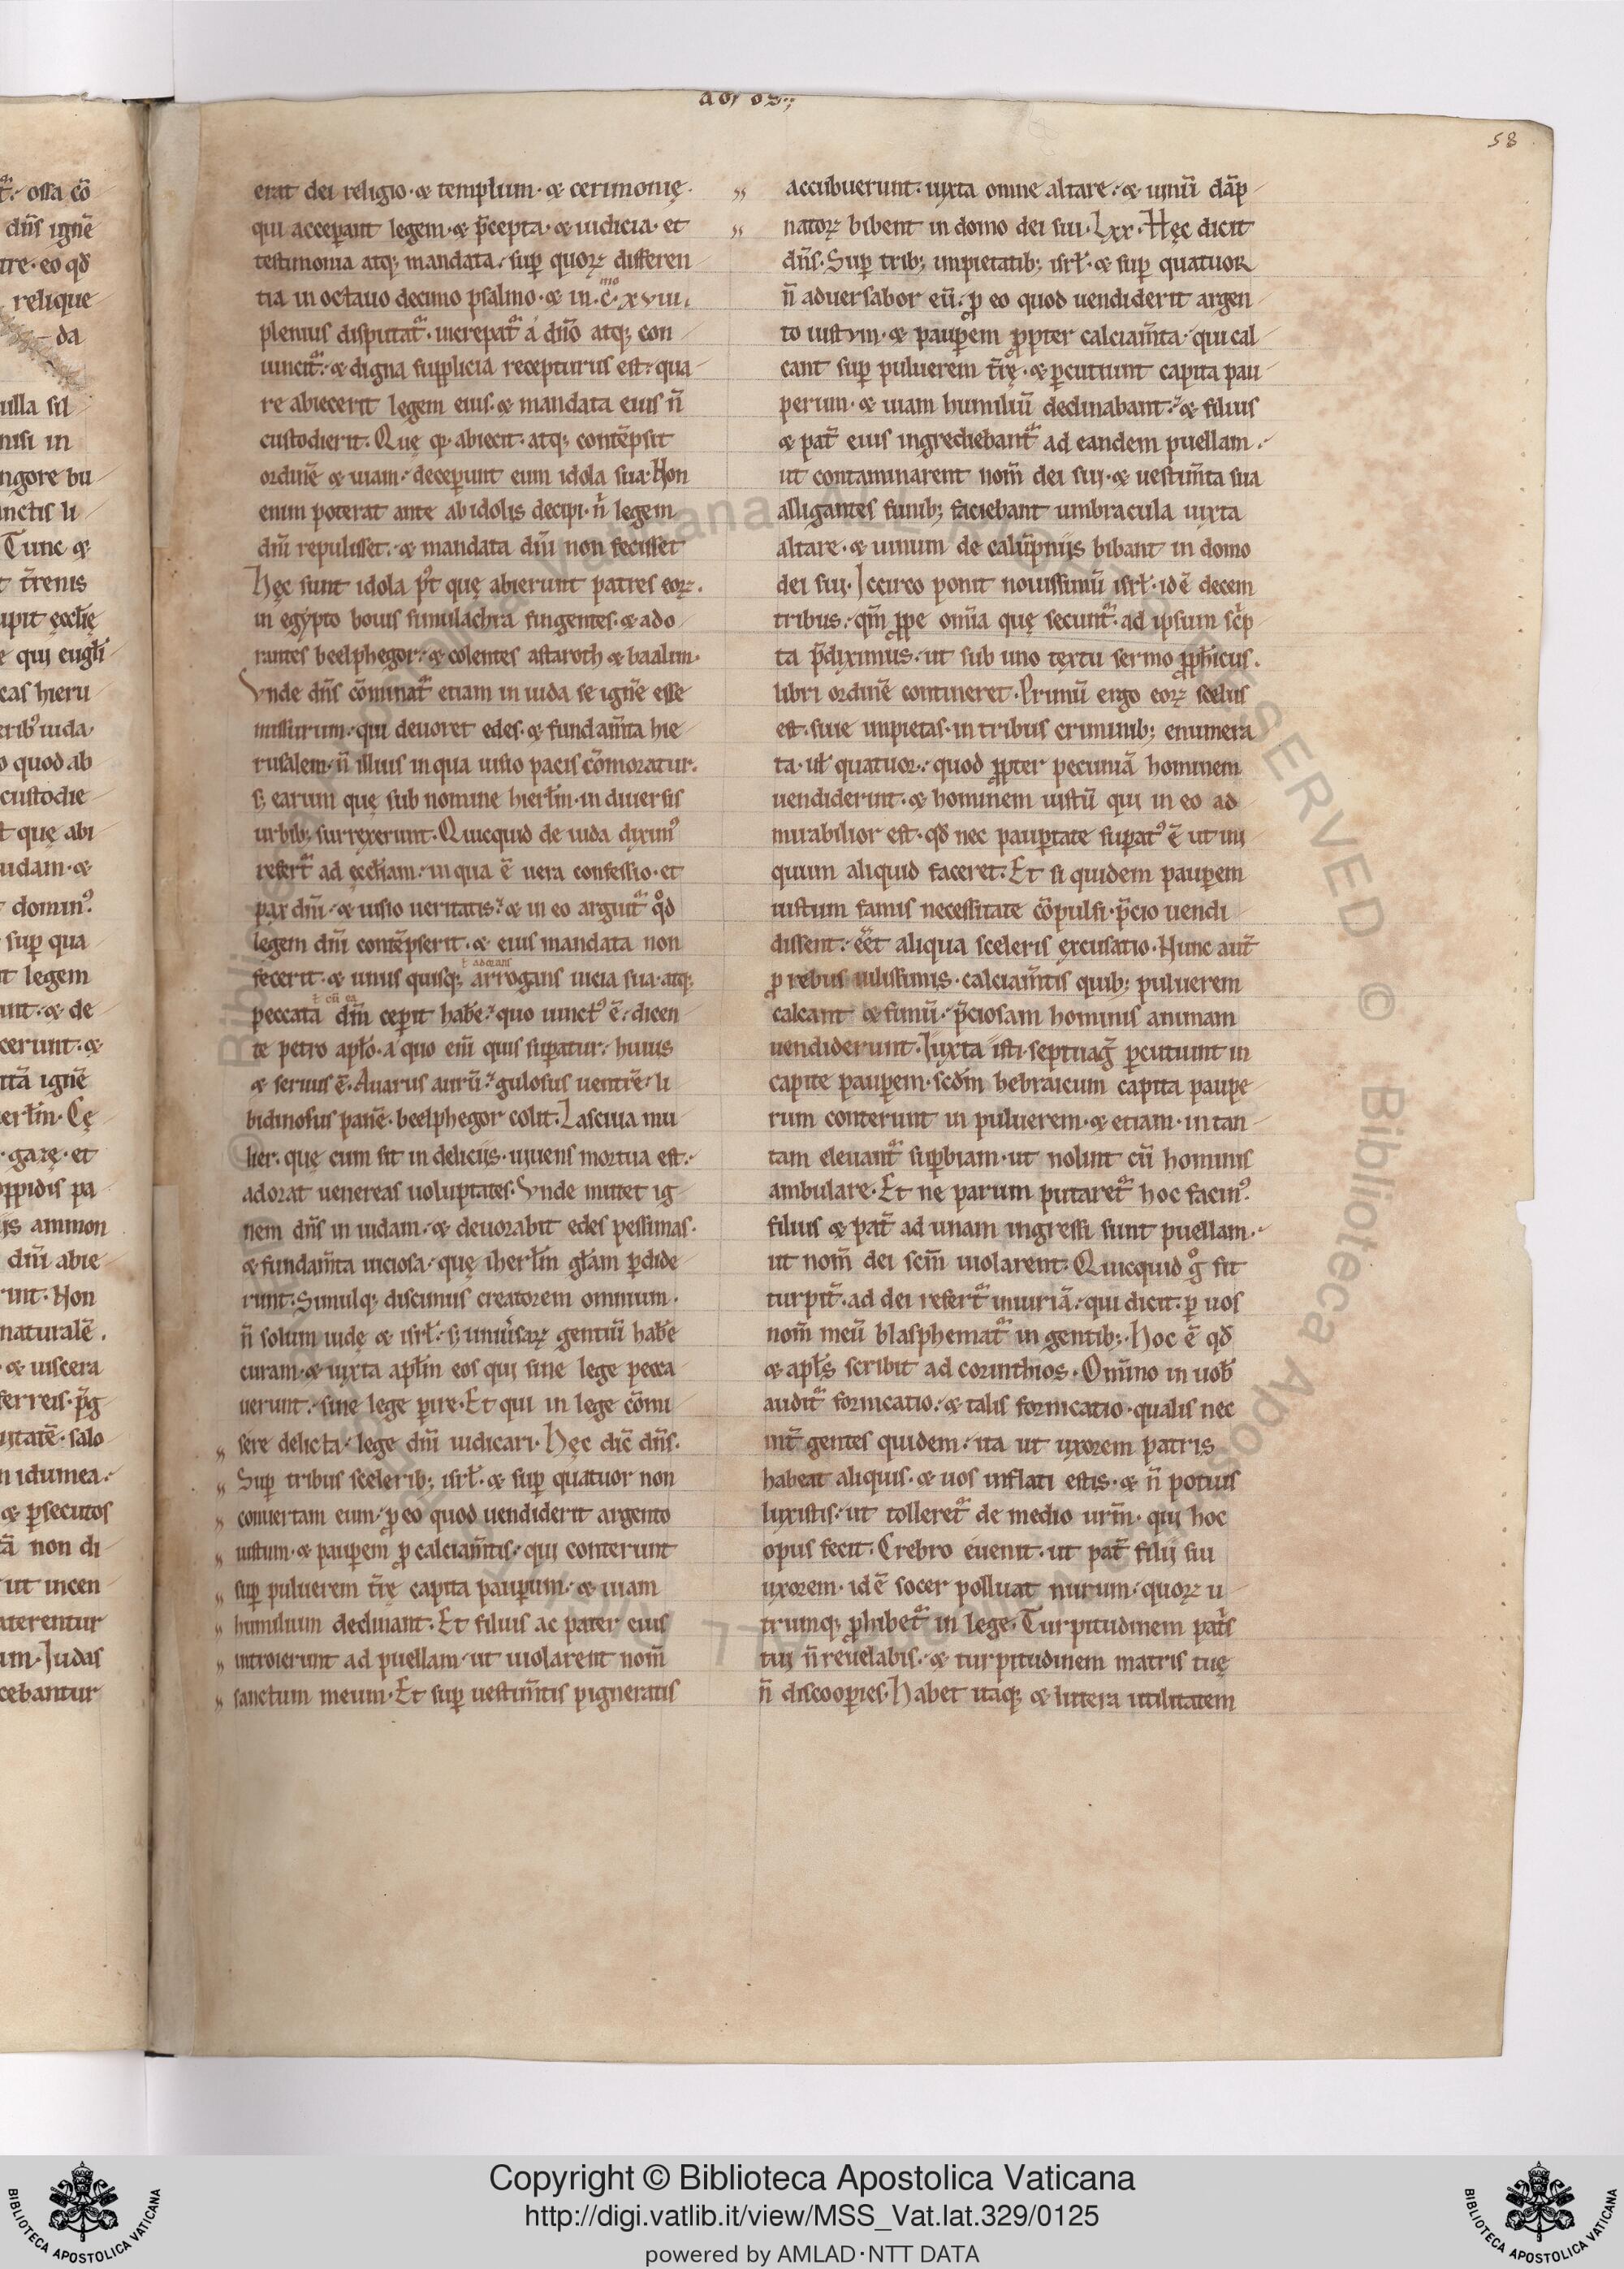 58
erat dei religio· & templum· & cerimonię·
qui acceperant legem· & p̄cepta· & iudicia· et
testimonia atq; mandata· sup̱ quoꝝ differen
tia in octauo decimo psalmo· & in· c̄· xviii·
plenius disputat᷑· increpat᷑ a dn̄o atq; con
uincit᷑· & digna supplicia recepturus est· qua
re abiecerit legem eius· & mandata eius n̄
custodierit· Quę qꝫ abiecit· atq; contēpsit
ordinē & uiam· decep̱unt eum idola sua· Non
enim poterat ante ab idolis decipi· n̄ legem
dn̄i repulisset· & mandata dn̄i non fecisset
Hęc sunt idola p̄t quę abierunt patres eoꝝ·
in egypto bouis simulachra fingentes· & ado
rantes beelphegor· & colentes astaroth & baalim·
Vnde dn̄s cōminat᷑ etiam in iuda se ignē esse
missurum· qui deuoret edes· & fundam̄ta hie
rusalem· n̄ illius in qua uisio pacis cōmoratur·
s; earum quę sub nomine hierl̄m· in diuersis
urbib; surrexerunt· Quicquid de iuda dixim᷒
refert᷑ ad ęccl̄iam· in qua ē uera confessio· et
pax dn̄i· & uisio ueritatis· & in eo arguit᷑ qd̄
legem dn̄i contēpserit· & eius mandata non
ł adorans
fecerit· & unus quisq; arrogans uicia sua· atq;
ł cū ea
peccata dn̄m cepit hab̄e· quo uinct᷒ ē· dicen
te petro apl̄o· a quo eni̅ quis sup̱atur· huius
& seruus ē· Auarus aurū· gulosus uentrē· li
bidinosus panē· beelphegor colit· Lasciua mu
lier· que cum sit in deliciis· uiuens mortua est·
adorat uenereas uoluptates· Vnde mittet ig
nem dn̄s in iudam· & deuorabit edes pessimas·
& fundam̄ta uiciosa· quę iherl̄m gl̄am p̱dide
runt· Simulq; discimus creatorem omnium·
n̄ solum iudę & isrl̄· s; uniu̅saꝝ gentiū hab̄e
curam· & iuxta apl̄m eos qui sine lege pecca
uerunt· sine lege p̱ire· Et qui in lege cōmi
sere delicta· lege dn̄i iudicari· Hęc dic̄ dn̄s·
Sup̱ tribus scelerib; isrl̄· & sup̱ quatuor non
conuertam eum· ꝓ eo quod uendiderit argento
iustum· & paup̱em ꝓ calciam̄tis· qui conterunt
sup̱ puluerem t̄rę capita paup̱um· & uiam
humilium declinant· Et filius ac pater eius
introierunt ad puellam· ut uiolarent nom̄
sanctum meum· Et sup̱ uestim̄tis pigneratis
accubuerunt· iuxta omne altare· & uinū dāp
natoꝝ bibent in domo dei sui· Lxx· Hęc dicit
dn̄s· Sup̱ trib; impietatib; isrl̄· & sup̱ quatuor
n̄ aduersabor eū· ꝓ eo quod uendiderit argen
to iustum· & paup̱em ꝓpter calciam̄ta· qui cal
cant sup̱ puluerem t̄rę· & p̱cutiunt capita pau
perum· & uiam humiliū declinabant· & filius
& pat̄ eius ingrediebant᷑ ad eandem puellam·
ut contaminarent nom̄ dei sui· & uestim̄ta sua
alligantes funib; faciebant umbracula iuxta
altare· & uinum de calūpniis bibant in domo
dei sui· Iccirco ponit nouissimū isrl̄· id ē decem
tribus· qm̄ ꝓpe om̄ia quę secunt᷑· ad ipsum sc̄p
ta p̄diximus· ut sub uno textu sermo ꝓph̄icus·
libri ordinē contineret· Primū ergo eoꝝ scelus
est· siue impietas· in tribus criminib; enumera
ta· ul̄ quatuor· quod ꝓpter pecuniā hominem
uendiderint· & hominem iustū qui in eo ad
mirabilior est· qd̄ nec paup̱tate sup̱at᷒ ē ut ini
quum aliquid faceret· Et si quidem paup̱em
iustum famis necessitate cōpulsi· p̄cio uendi
dissent· eēt aliqua sceleris excusatio· Nunc aut̄
ꝓ rebus uilissimis· calciam̄tis quib; puluerem
calcant & fimū· p̄ciosam hominis animam
uendiderunt· Iuxta isti septuag̅ p̱cutiunt in
capite paup̱em· scd̄m hebraicum capita paupe
rum conterunt in puluerem· & etiam· in tan
tam eleuant᷑ sup̱biam· ut nolint cū hominis
ambulare· Et ne parum putaret᷑ hoc facin᷒·
filius & pat̄ ad unam ingressi sunt puellam·
ut nom̄ dei scm̄ uiolarent· Quicquid g̊ fit
turpit̄· ad dei refert᷑ iniuriā· qui dicit· p̱ uos
nom̄ meū blasphemat᷑ in gentib;· Hoc ē qd̄
& apl̄s scribit ad corinthios· Om̄ino in uob̄
audit᷑ fornicatio· & talis fornicatio· qualis nec
int̄ gentes quidem· ita ut uxorem patris
habeat aliquis· & uos inflati estis· & n̄ potius
luxistis· ut tolleret᷑ de medio ur̄m· qui hoc
opus fecit· Crebro euenit· ut pat̄ filii sui
uxorem· id ē socer polluat nurum· quoꝝ u
trumq; ꝓhibet᷑ in lege· Turpitudinem pat̄s
tui n̄ reuelabis· & turpitudinem matris tuę
n̄ discoop̱ies· Habet itaq; & littera utilitatem
Copyright © Biblioteca Apostolica Vaticana
http://digi.vatlib.it/view/MSS_Vat.lat.329/0125
powered by AMLAD·NTT DATA
BIBLIOTECA APOSTOLICA VATICANA
BIBLIOTECA APOSTOLICA VATICANA